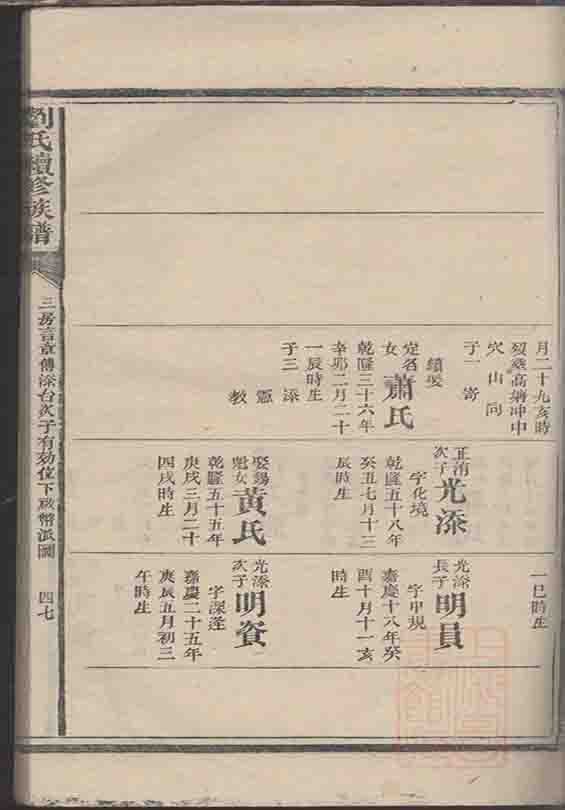 月二十九亥時
歿葬高塘冲中
穴山向
子一寄
續娶
定名
女
蕭氏
乾隆三十六年
辛卯二月二十
一辰時生
子三添
憲
教
正洧
次子
光添
字化境
乾隆五十八年
癸丑七月十三
辰時生
娶錫
魁女
黄氏
乾隆五十五年
庚戌三月二十
四戌時生
一巳時生
光添
長子
明員
字甲規
嘉慶十八年癸
酉十月十一亥
時生
光添
次子
明資
字深逢
嘉慶二十五年
庚辰五月初三
午時生
劉氏續修族譜
三房言京傳添台次子有効位下啟幣派圖
四七